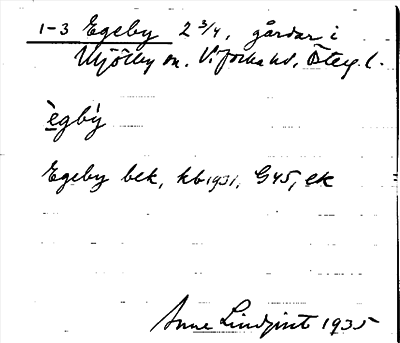 1-3 Egeby 2 3/4, gårdar i
Mjölby sn. Vifolka hd, Östeg. l.
ègbỳ
Egeby bek, kb 1931, G45, ek
Anne Lindqvist 1935